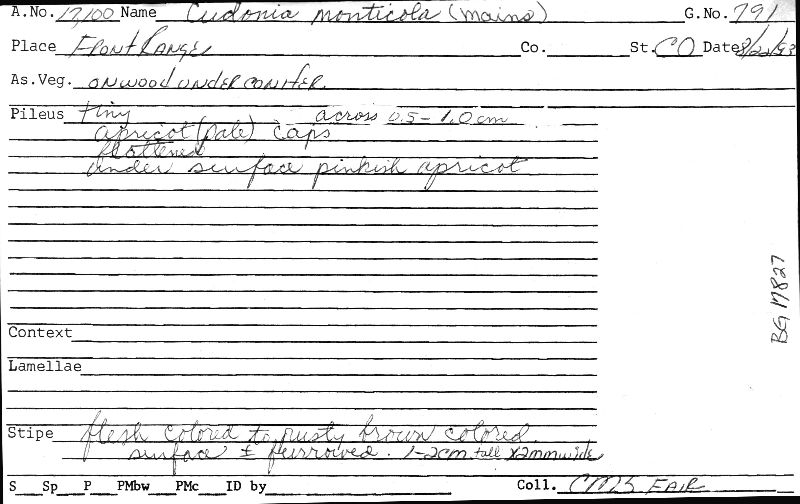 A.No. 17,100 Name Cudonia monticola (Mains) G.No. 791
Place FRONT RANGE Co. St. CO Date 8/22/93
As.Veg. ON WOOD UNDER CONIFER.
Pileus tiny across 0.5-1.0cm
apricot (pale) caps
flattened
under surface pinkish apricot
BG 17827
Context
Lamellae
Stipe flesh colored to rusty brown colored.
surface ± furrowed. 1-2cm tall x2mm wide
S Sp P PMbw PMc ID by Coll. CMS FAIR